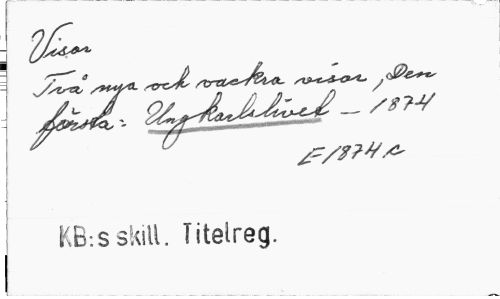 Visor
Två nya och vackra visor, Den
första: Ungkarlslivet — 1874
E 1874 c
KB:s skill. Titelreg.